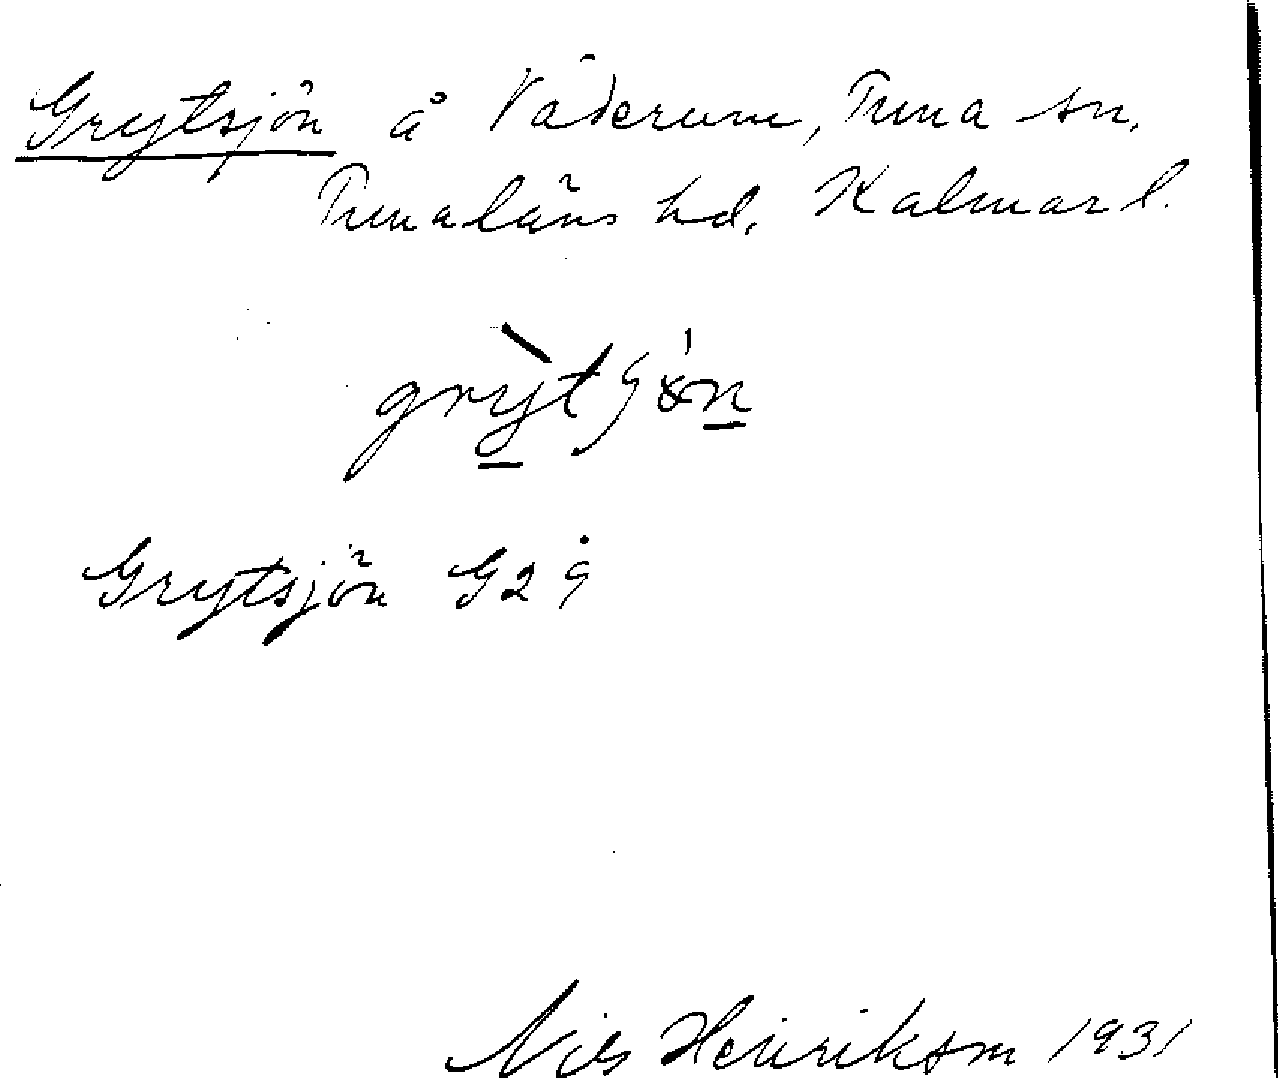 Grytsjön å Väderum, Tuna sn,
Tunaläns hd, Kalmar l.
Grytsjön G2
Nils Henrikson 1931